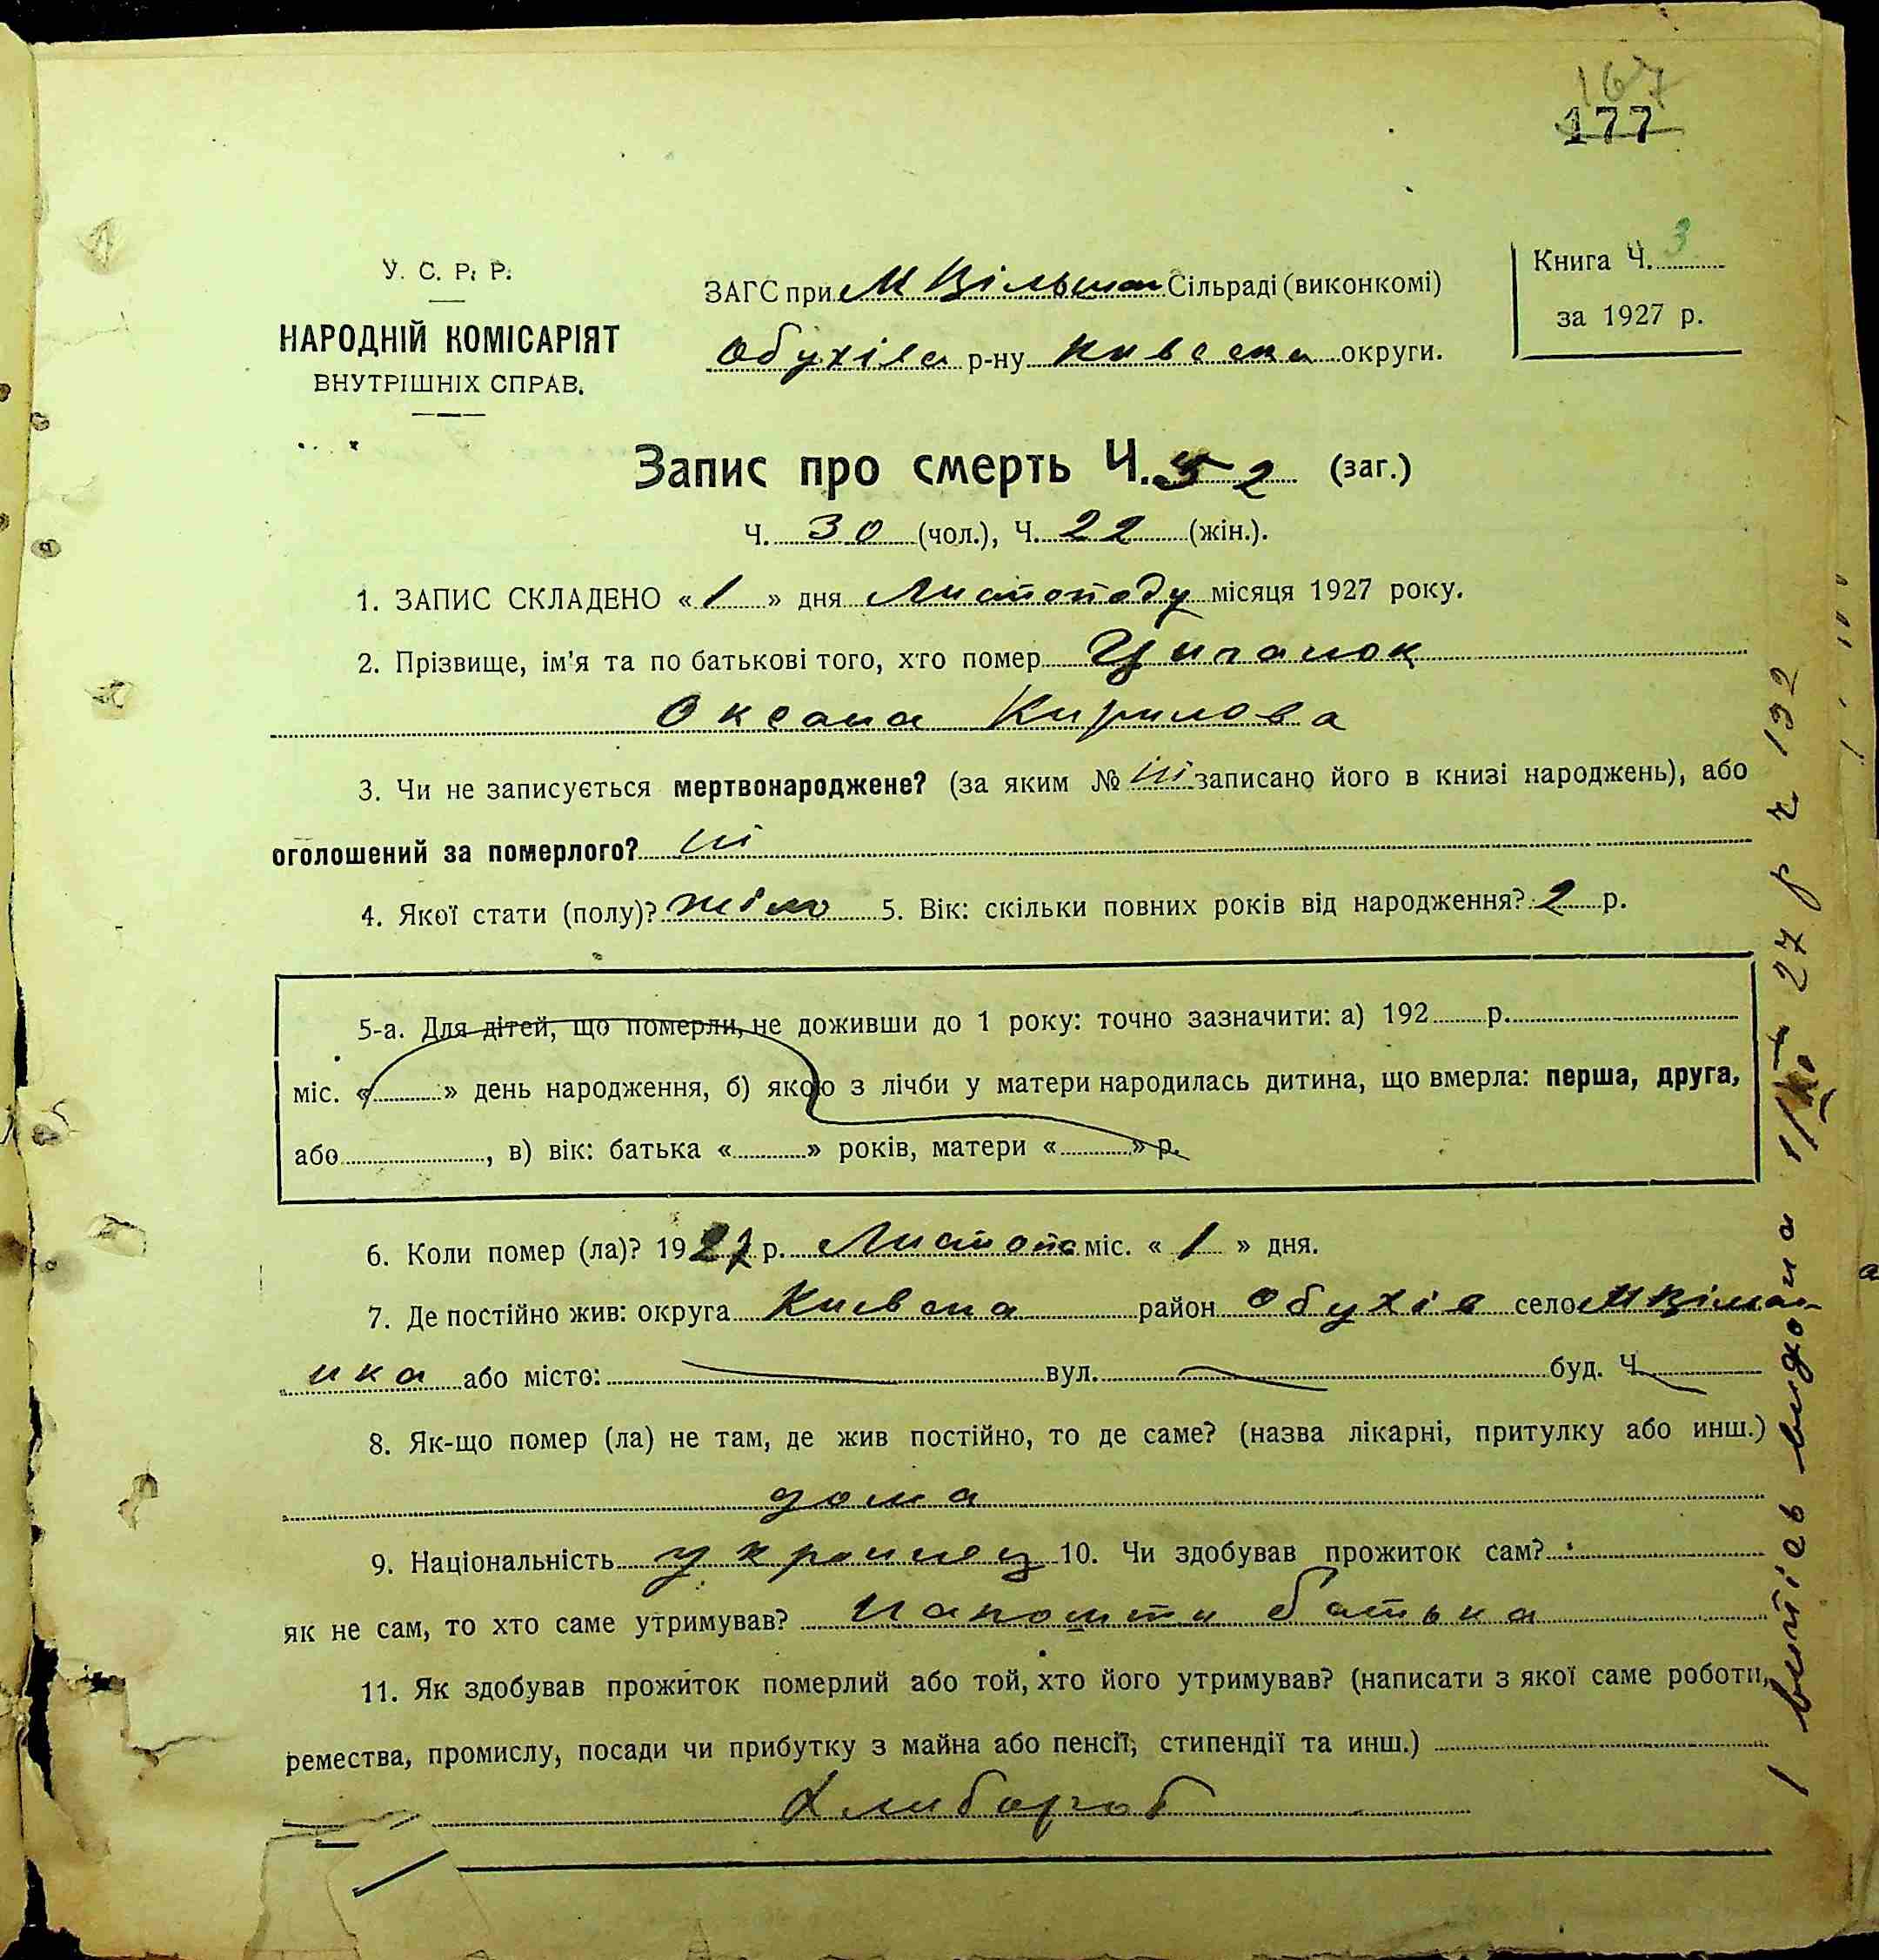 167
177
У. С. Р. Р.
НАРОДНІЙ КОМІСАРІЯТ
ВНУТРІШНІХ СПРАВ.
ЗАГС при М Вільшан Сільраді (виконкомі)
Обухівс р-ну Київська округи.
Книга Ч. 3
за 1927 р.
Запис про смерть Ч. 52 (заг.)
Ч. 30 (чол.), Ч. 22 (жін.).
1. ЗАПИС СКЛАДЕНО « 1 » дня Листопаду місяця 1927 року.
2. Прізвище, ім'я та по батькові того, хто помер Циганок
Оксана Кирилова
3. Чи не записується мертвонароджене? (за яким № ні записано його в книзі народжень), або
оголошений за померлого? ні
4. Якої стати (полу)? жіно 5. Вік: скільки повних років від народження? 2 р.
5-а. Для дітей, що померли, не доживши до 1 року: точно зазначити: а) 192 р.
міс. « » день народження, б) якою з лічби у матери народилась дитина, що вмерла: перша, друга,
або , в) вік: батька « » років, матери « » р.
6. Коли помер (ла)? 1927 р. Листопа міс. « 1 » дня.
7. Де постійно жив: округа Київска район Обухів село М Вільша-
нка або місто: вул. буд. Ч.
8. Як-що помер (ла) не там, де жив постійно, то де саме? (назва лікарні, притулку або инш.)
дома
9. Національність украинец 10. Чи здобував прожиток сам?
як не сам, то хто саме утримував? На кошти батька
11. Як здобував прожиток померлий або той, хто його утримував? (написати з якої саме роботи,
ремества, промислу, посади чи прибутку з майна або пенсії, стипендії та инш.)
Хлибороб
1 витісь видана 1/XI 27 р 132